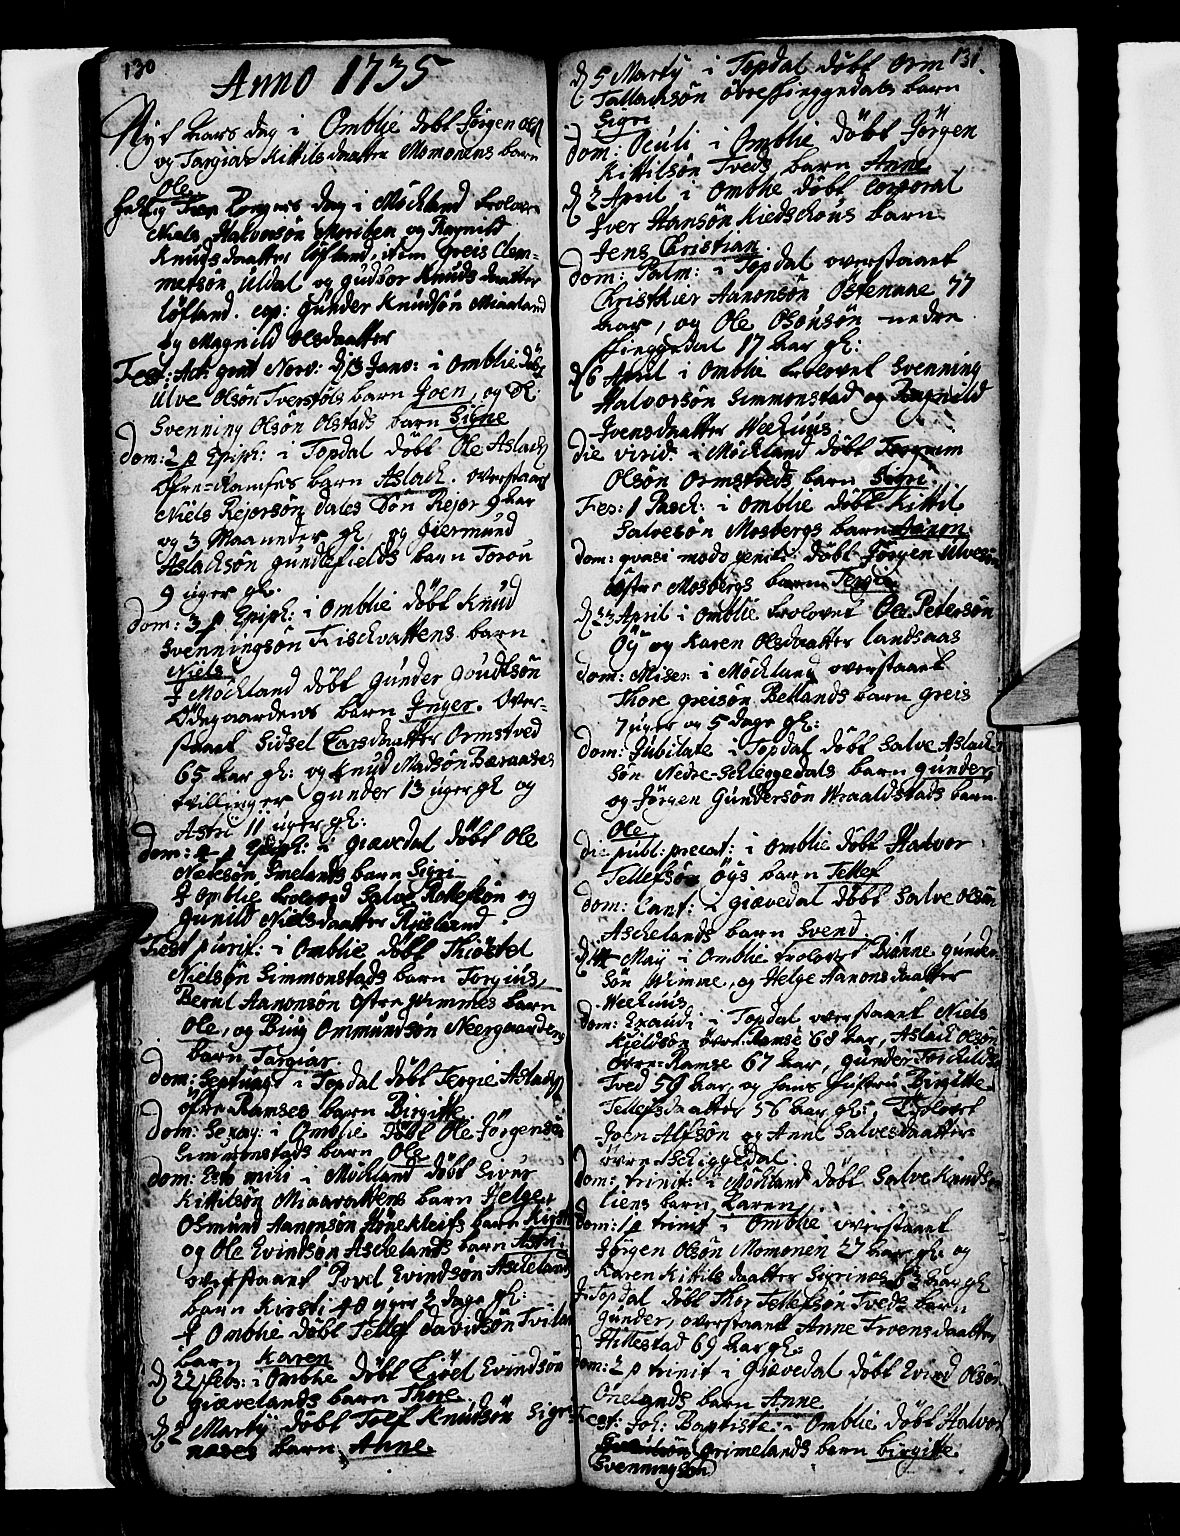 130
Anno 1735
Nyt aars dag i Omblie döbt Jörgen Ols
og Targiar Kittilsdaatter Momonens barn
Ole
dag i Möckland trolovet
Niels Halvorsön Moriben og Ragnild
Knudsdaatter löfland, item Greis Clem-
metsön Uldal og Gudbor Knuds daatter
löfland. cop: Gunder Knudsön Miaaland
og Magnild Olsdaatter
Fest: Act: grat Norv: d 13 Janv: i Omblie döbt
Ulve Olsön Tverstöls barn Joen, og
Svenning Olsön Olstads barn Signe
dom: 2 p Epiph: i Topdal döbt Ole Aslachs
öfre-Ramses barn Aslach. overstaaet
Niels Rejersön dales Sön Rejer 9 aar
og 3 Maaneder gl. og Giermund
Aslachsön Gundefields barn Torou
9 uger gl.
dom: 3 p Epiph: i Omblie döbt Knud
Svenningsön Frischvattens barn
Niels
J Möckland döbt Gunder Goudtsön
Ödegaardens barn Inger. Over-
staaet Sidsel Larsdaatter Ormstved
65 aar gl: og Knud Madsön Baraases
tvillinger Gunder 13 uger gl og
Astri 11 uger gl:
dom: 4 p Epiph: i Giævedal döbt Ole
Nielsön Smelands barn Sigri
J Omblie trolovet Salve Rollefsön og
Gunild Nielsdaatter Rysland
Fest purif: i Omblie döbt Thiöstel
Nielsön Simmonstads barn Torgius,
Bernt Aanonsön öfre Wimmes barn
Ole, og Buug Ommundsön Neergaardens
barn Targiar.
dom: Septuag: i Topdal döbt Tergie Aslachs
öfre Ramses barn Birgitte.
dom: Sexag: i Omblie döbt Ole Jörgensön
Simmonstads barn Ole
dom: Esto mihi i Möckland döbt Siver
Kittilsön Miaavattens barn Helge,
Osmund Aanonsön Hönekleifs barn Kirsti
og Ole Evindsön Aschelands barn Astri:
overstaaet Povel Evindsön Aschelands
barn Kirsti 40 uger 2 dage gl:
J Omblie döbt Tellef Davidsön Tvitens
barn Karen
d 22 Feb: i Omblie döbt Kiöel Evindsön
Giævelands barn Thore.
d 2 Martij döbt Tolf Knudsön Sigri-
næses barn Anne.
131.
d 5 Martij i Topdal döbt Orm
Tallachsön övre slinggedals barn
Sigri
dom: Oculi i Omblie döbt Jörgen
Kittilsön Tveds barn Anne
d 2 April i Omblie döbt Corporal
Iver Hansön Kiedschous barn
Jens Christian.
dom: Palm: i Topdal overstaaet
Christhier Aanonsön Östenaae 77
aar, og Ole Olsönsön nedre
slinggedal 17 aar gl:
d 6 April i Omblie trolovet Svenning
Halvorsön Simmonstad og Ragnild
Joensdaatter Wæhuus,
die virid: i Möckland döbt Torgrim
Olsön Ormstveds barn Sigri.
Fes: 1 Pasch: i Omblie döbt Kittil
Salvesön Mosbergs barn Aanon.
dom: qvasi modo geniti döbt Jörgen Ulvesön
öfre Mosbergs barn Tergie
d 23 April i Omblie trolovet Ole Petersön
Öy og Karen Olsdaatter landsaas
dom: Miser: i Möckland overstaaet
Thore Greisön Betlands barn Greis
7 uger og 5 dage gl:
dom: Jubilate i Topdal döbt Salve Aslach-
sön Nedre-Schliggedals barn Gunder,
og Jörgen Gundersön Wraaldstads barn
Ole
die publ: precat: i Omblie döbt Halvor
Tellefsön Öys barn Tellef
dom: Cant: i Giævedal döbt Salve Olsön
Aschelands barn Svend
d 14 Maij i Omblie trolovet Biönne Gunder-
sön Wimme, og Helge Aanonsdaatter
Wæhuus
dom: Exaudi i Topdal overstaaet Niels
Kieldsön övre-Ramse 68 aar, Aslach Olsön
övre-Ramse 67 aar, Gunder Torchildsön
Tved 59 aar, og hans hustru Birgitte
Tellefsdaatter 56 aar gl: Trolovet
Joen Alfsön og Anne Salvesdaatter
övre Schliggedal.
dom: trinit: i Möckland döbt Salve Knudsön
liens barn Karen
dom: 1 p trinit i Omblie overstaaet
Jörgen Olsön Momonen 27 aar gl: og
Karen Kittilsdaatter Sigrinæs 63 aar gl
J Topdal döbt Thor Tellefsön Tveds barn
Gunder, overstaaet Anne Troensdaatter
Hillestad 69 aar gl.
dom: 2 p trinit i Giævedal döbt Evind Olsön
Onelands barn Anne
Fest: Joh: Baptistæ: i Omblie döbt Halvor
Grimelands barn Birgitte.
Svenningsön